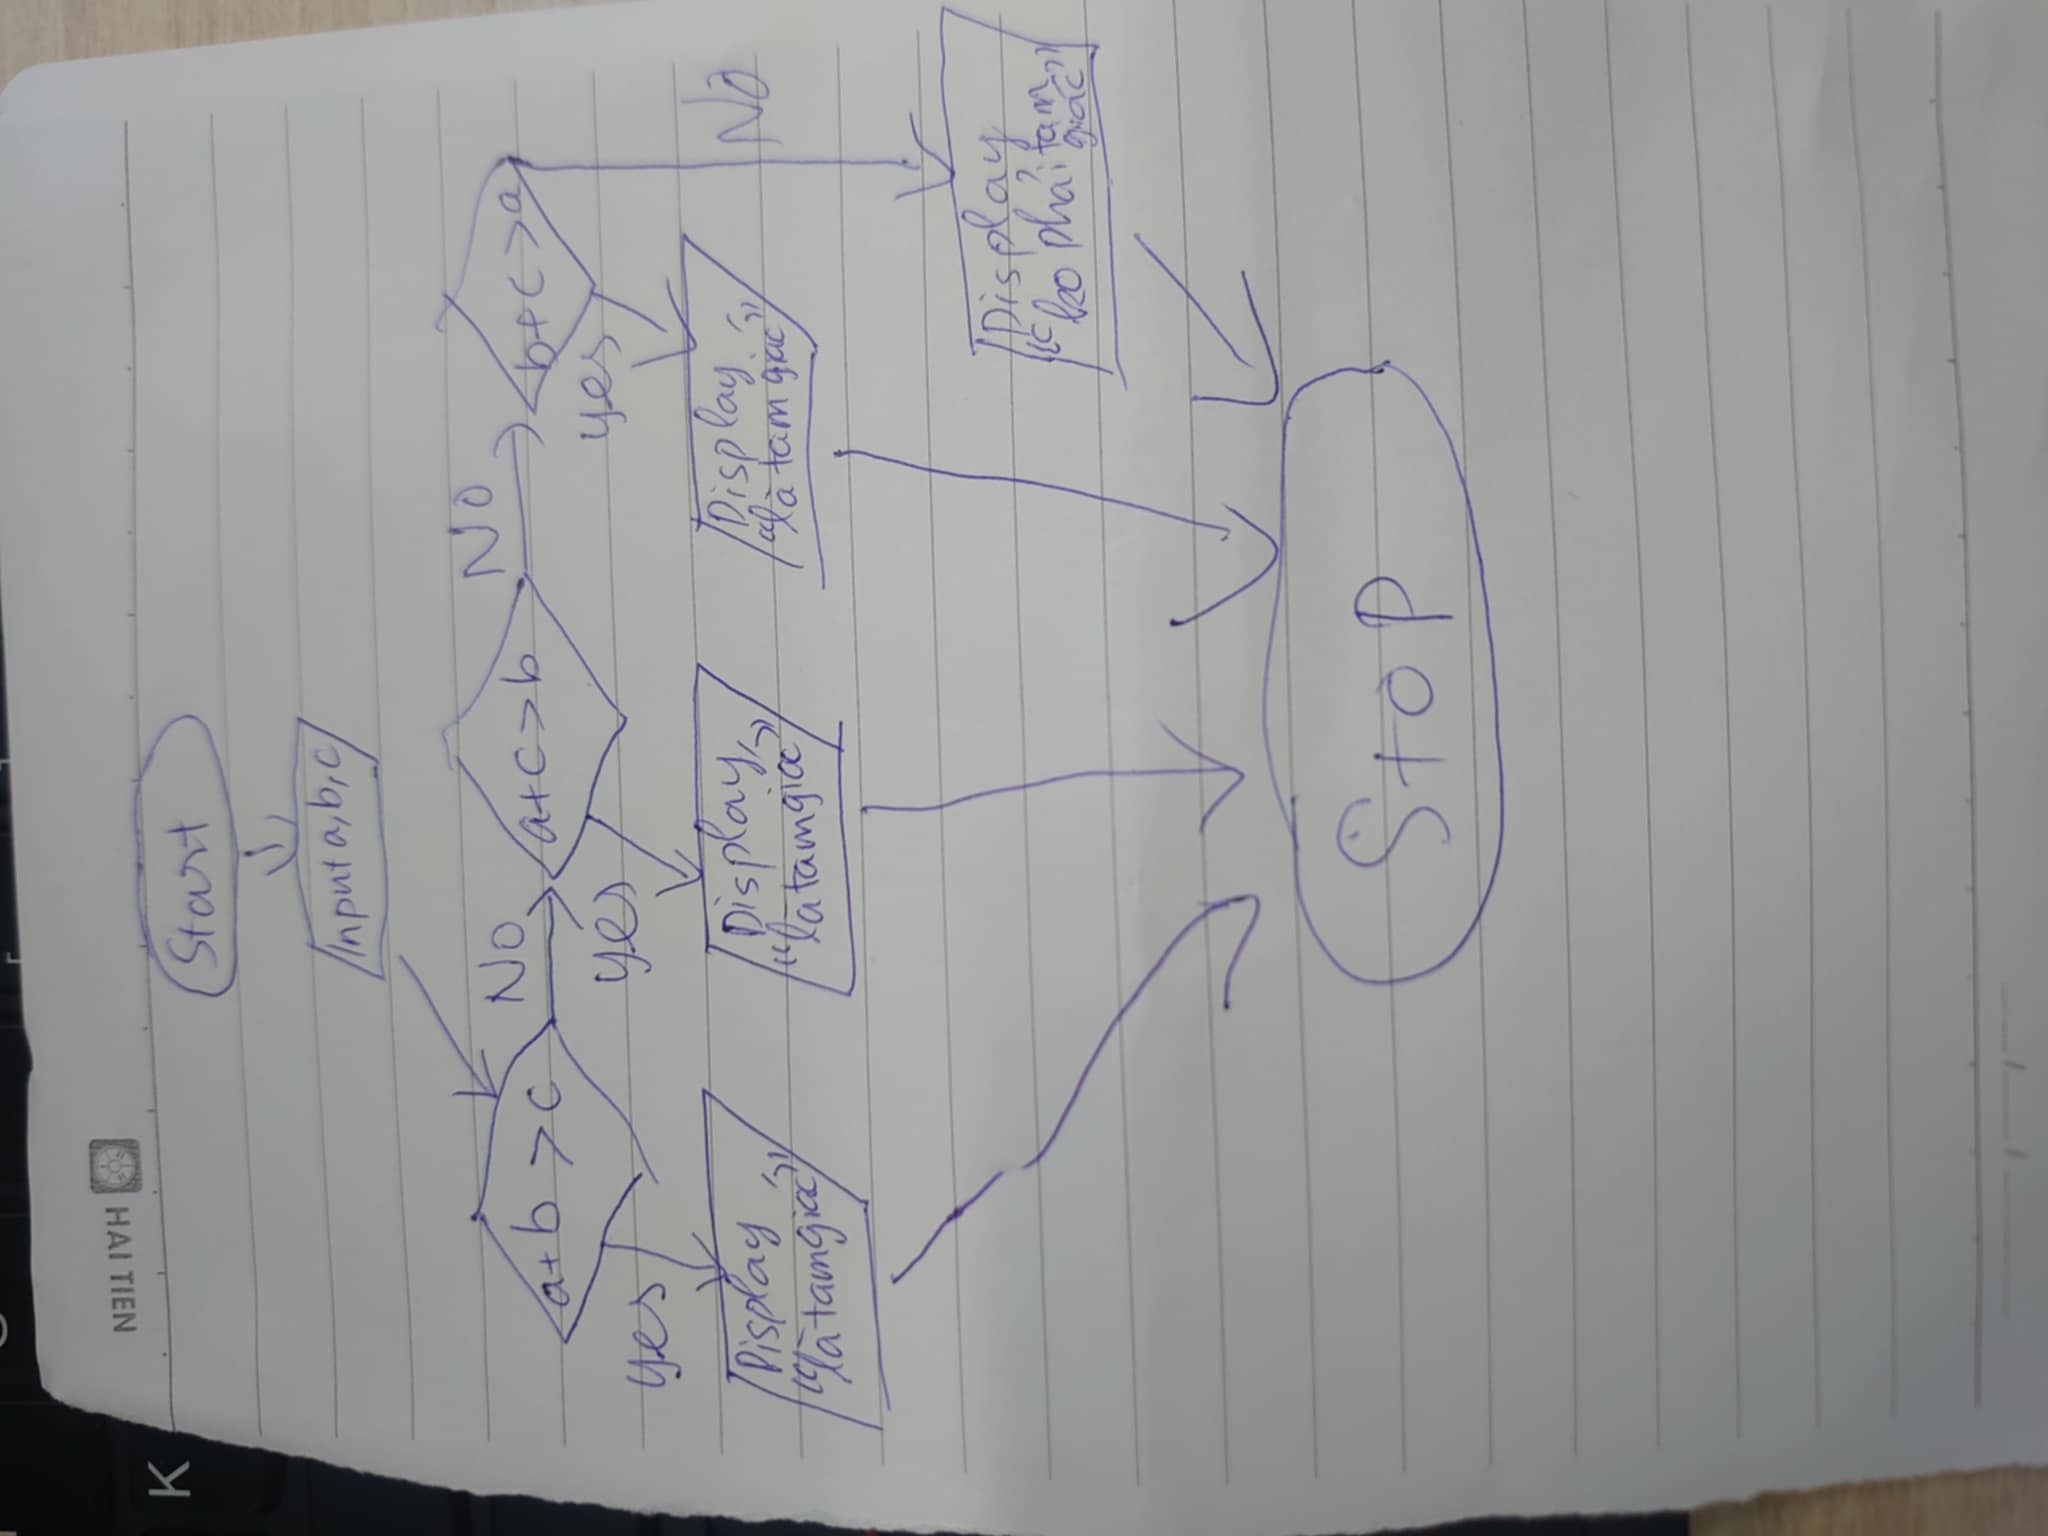 K
HẢI TIẾN
Start
Input a, b, c
a+b > c
NO
a+c > b
NO
b+c > a
yes
yes
yes
Display
"là tam giác"
Display
"là tam giác"
Display
"là tam giác"
NO
Display
"ko phải tam
giác"
Stop